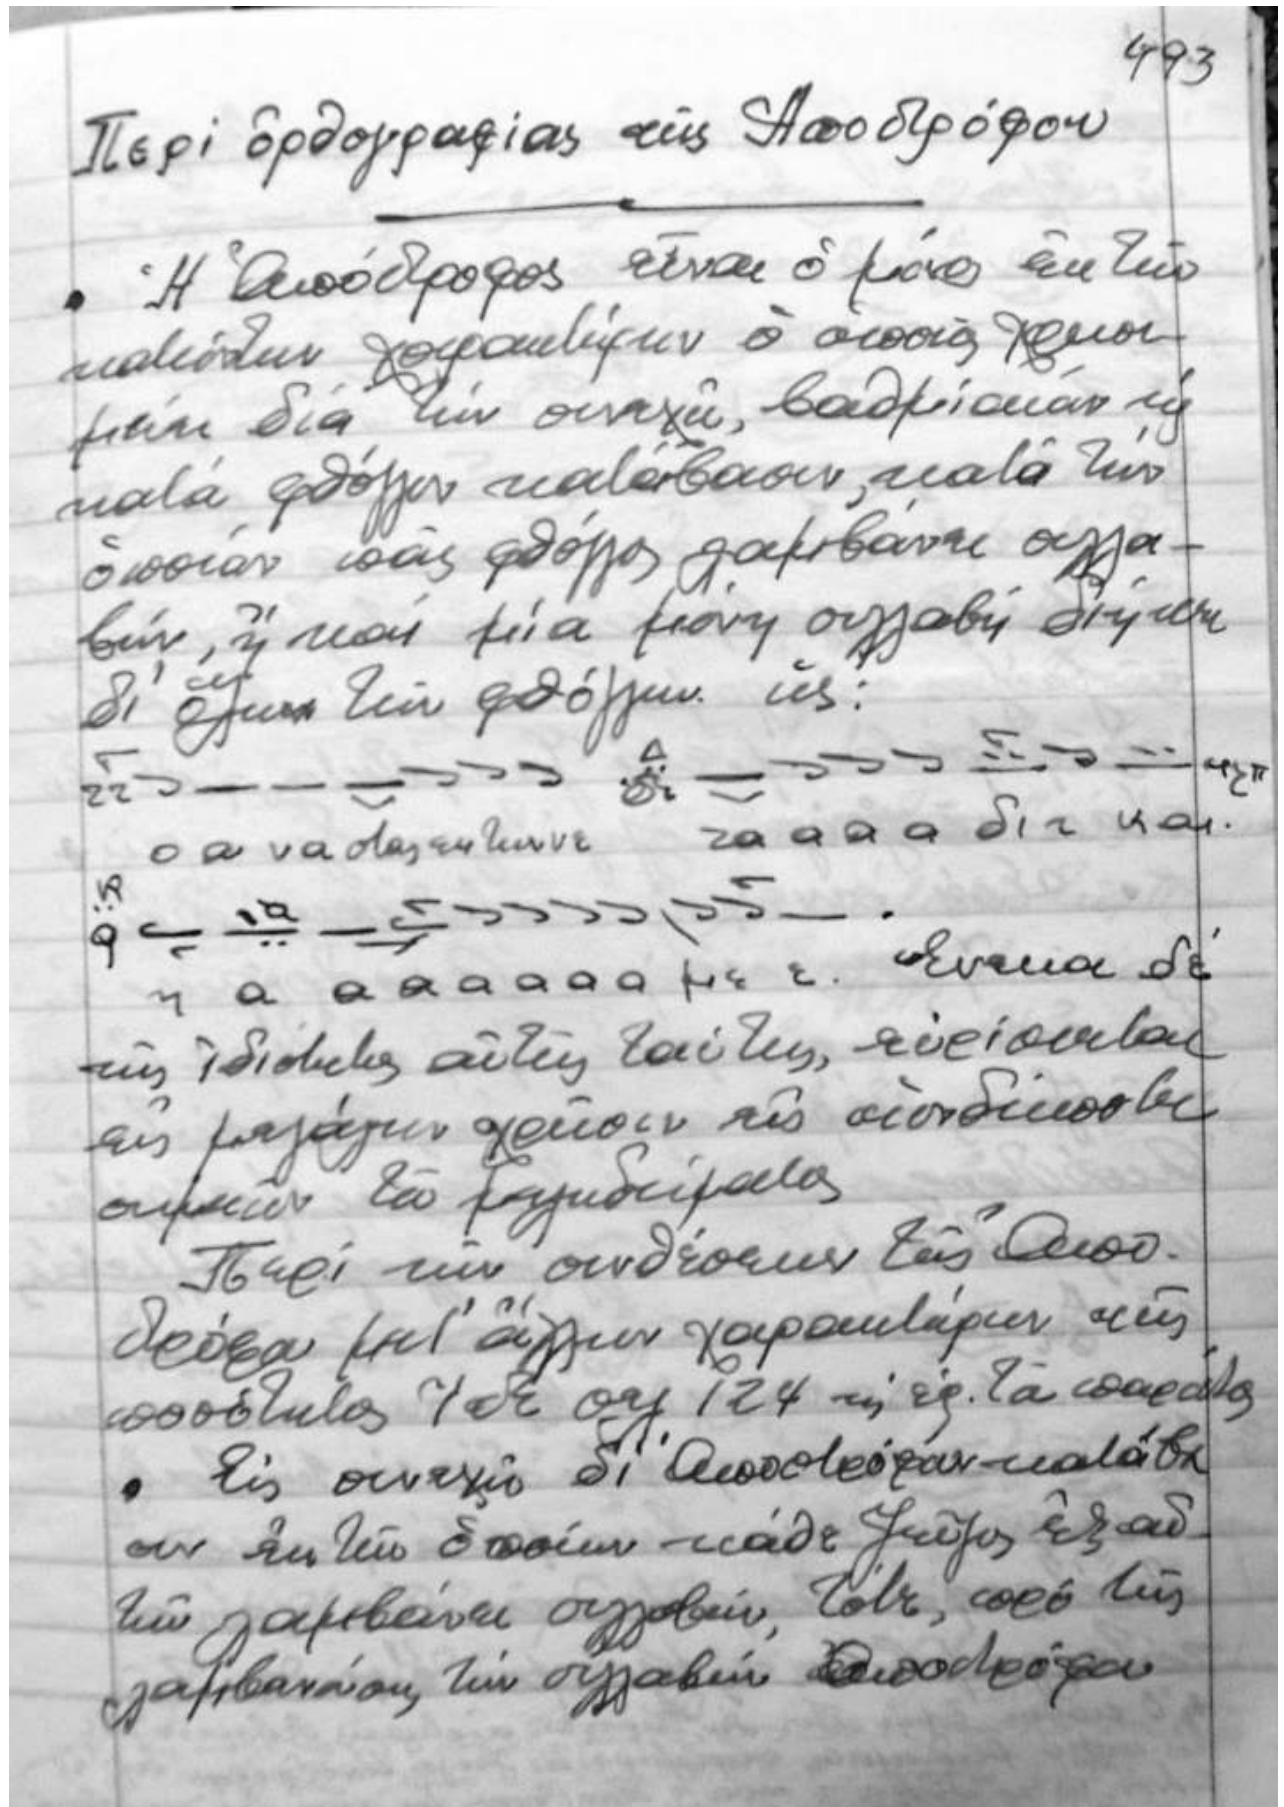 493
Περί ὀρθογραφίας τῆς Ἀποστρόφου
• Ἡ Ἀπόστροφος εἶναι ὁ μόνος ἐκ τῶν
κατιόντων χαρακτήρων ὁ ὁποῖος χρησι-
μεύει διά τήν συνεχῆ, βαθμιαίαν ἤ
κατά φθόγγον κατάβασιν, κατά τήν
ὁποίαν πᾶς φθόγγος λαμβάνει συλλα-
βήν, ἤ καί μία μόνη συλλαβή διήκει
δι' ὅλων τῶν φθόγγων. ὡς:
ο α να στας εκ των νε
τα α α α δι ε και.
η α α α α α α α με ε. Ἕνεκα δέ
τῆς ἰδιότητος αὐτῆς ταύτης, εὑρίσκεται
εἰς μεγάλην χρῆσιν εἰς
τό
Περί τῶν συνθέσεων τῆς Ἀπο-
στρόφου μετ' ἄλλων χαρακτήρων τῆς
ποσότητος ἴδε σελ 124 ἐφ. τά
• Εἰς συνεχῆ δι' Ἀποστρόφων κατάβα
σιν ἐκ τῶν ὁποίων κάθε ζεῦγος ἐξ αὐ-
τῶν λαμβάνει συλλαβήν, τότε, πρό τῆς
λαμβανούσης τήν συλλαβήν Ἀποστρόφου